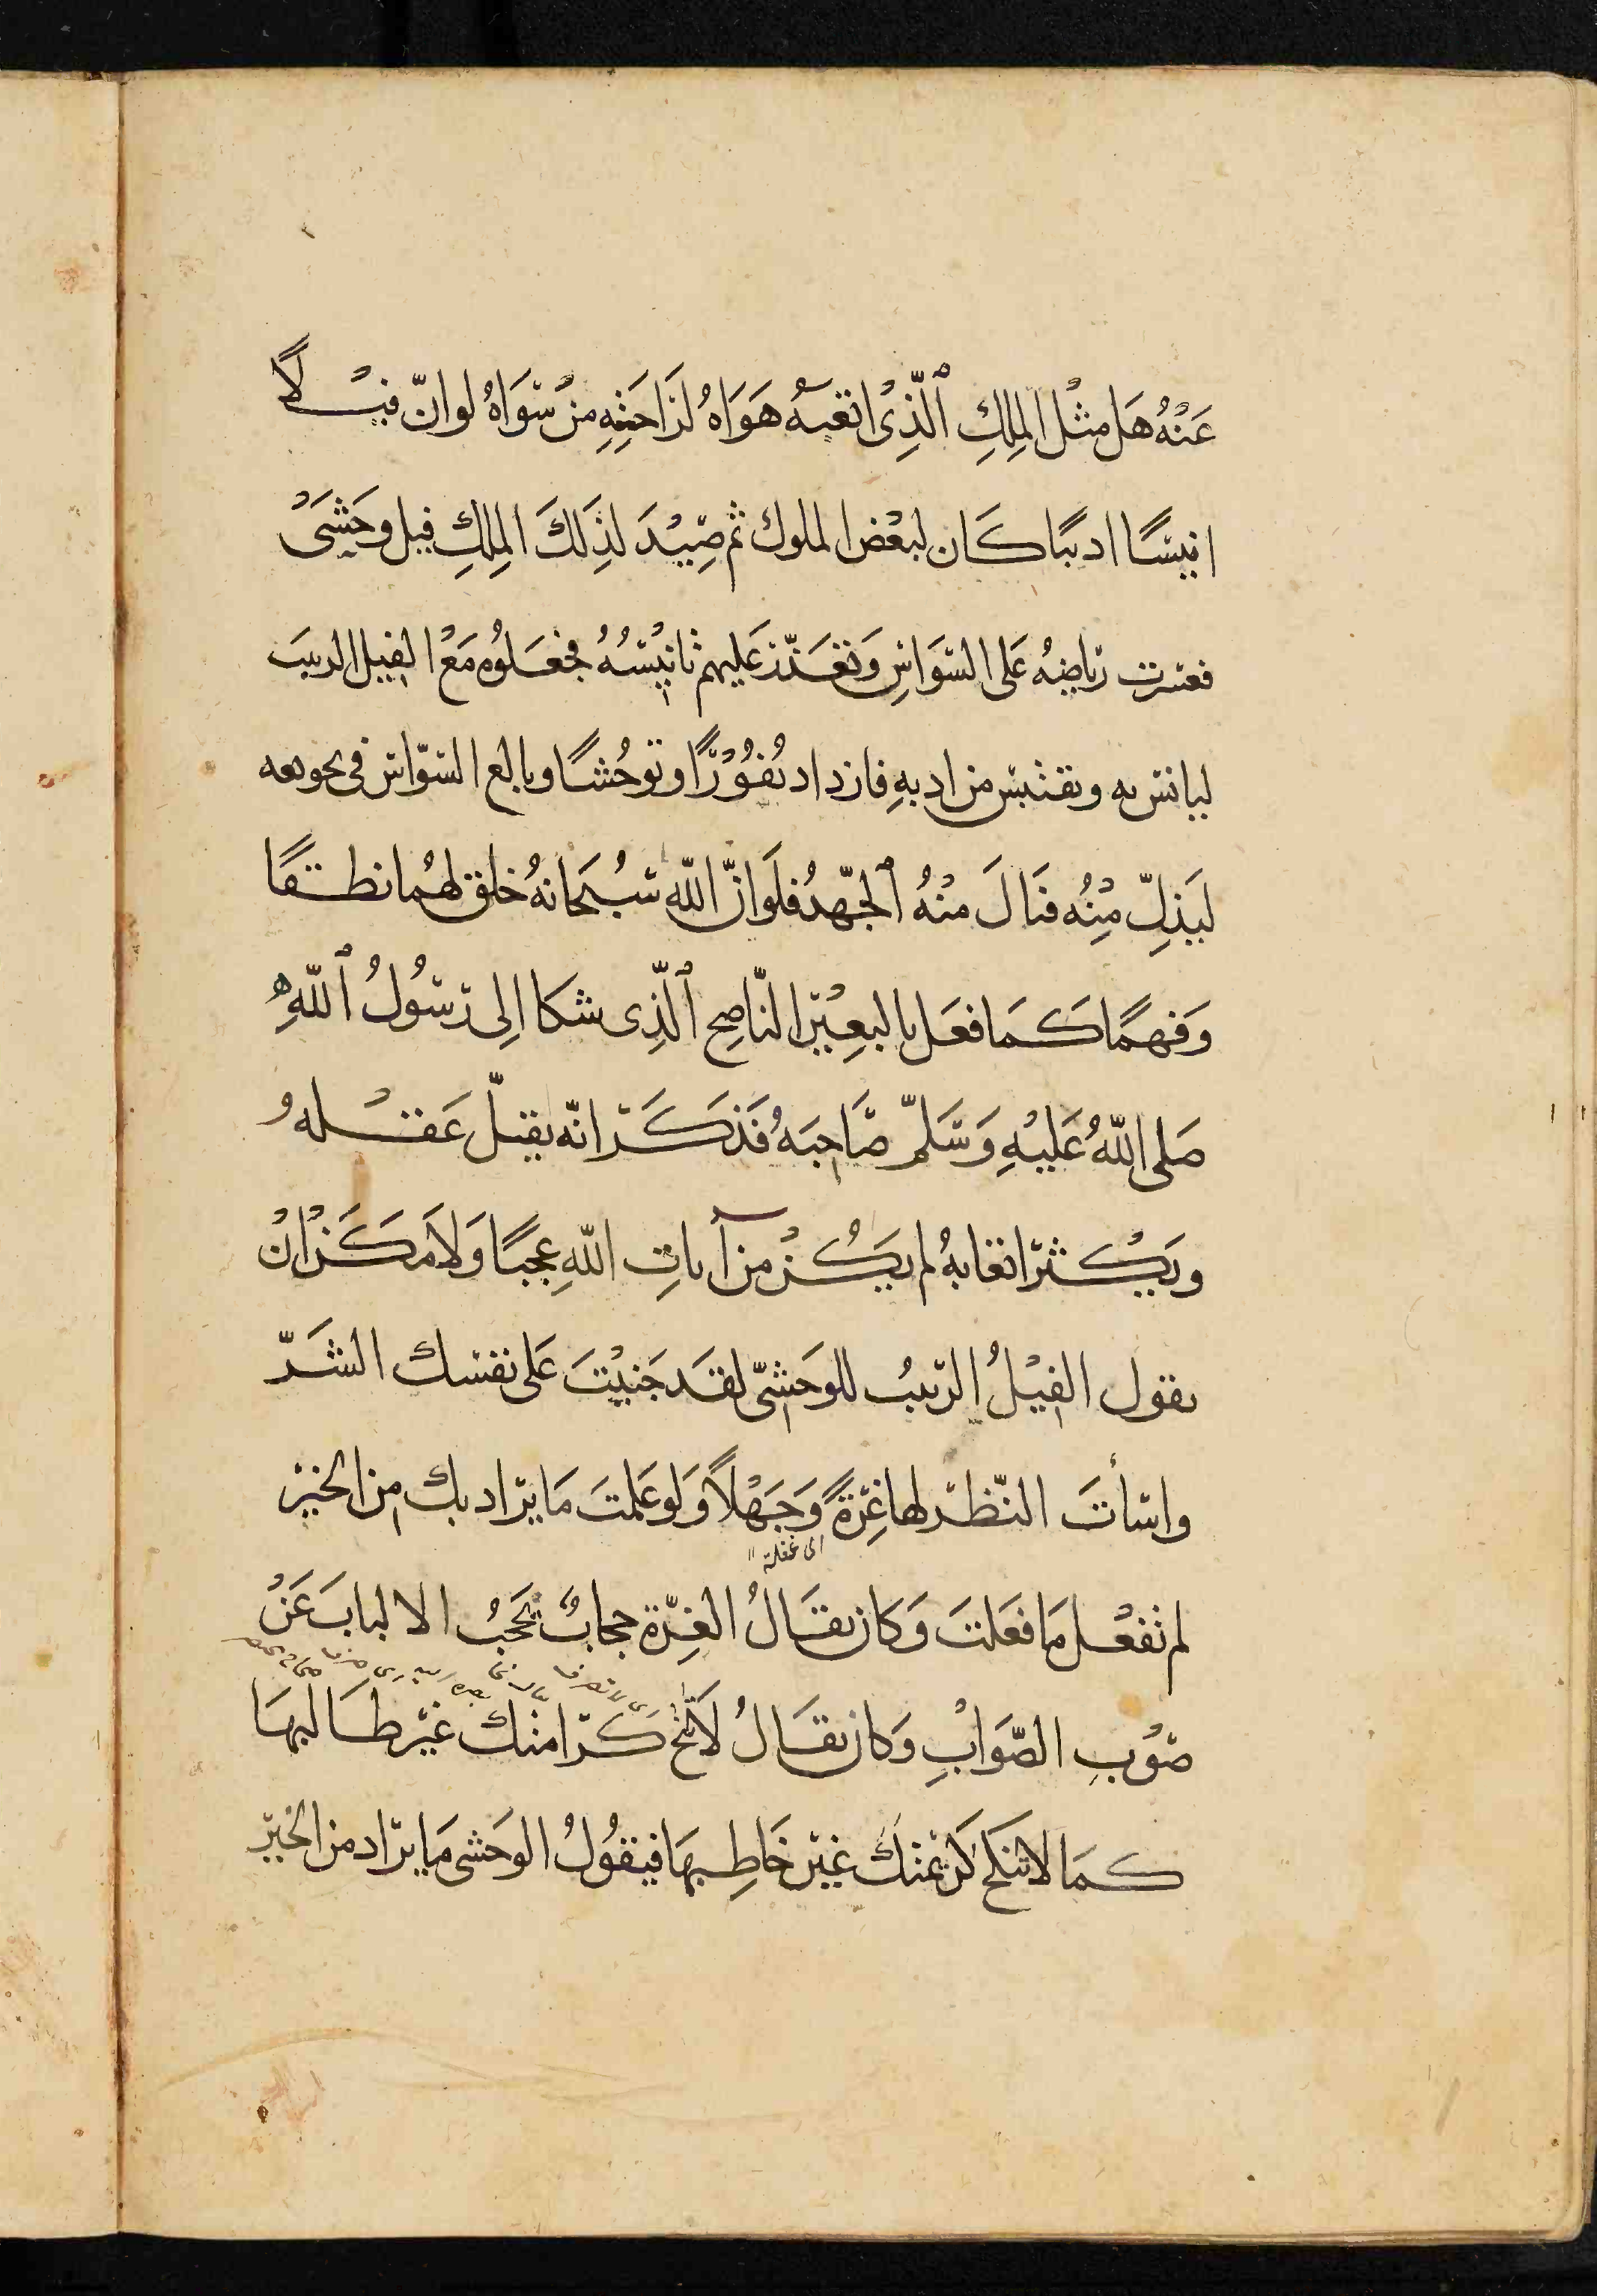 عَنْهُ هَل مثْل الملِكِ ٱلّذِىْ اتعبهُ هَوَاهُ لرَاحَتِهِ مِنْ سِوَاهُ لو انّ فيْلًا
انيسًا اديبًا كَان لبعْض الملوك ثم صِيْدَ لذِلكَ الملِكِ فيل وحْشَىْ
فعسرت رياضتهُ عَلى السَوَاسِ وَتعَذّر عَليهم تانِيْسُهُ فجعَلوُه مَعْ الفيل الربيب
ليانس به ويقتبس من ادبهِ فازداد نُفُوْرًا وتوحُشًا وبالغ السوّاس فى تجويعه
ليَذِلّ مِنْه فنَالَ منْهُ ٱلجَهْدُ فلَو انّ اللّه سُبْحَانهُ خلق لهُما نطقًا
وَفهمًا كَمَا فعَل بالبعِيْر الناصِح ٱلّذِى شكا اِلى رَسُولُ ٱللّهِ
صَلى اللّهُ عَليْهِ وَسَلمّ صَاحِبَهُ فَذكَرَ انّه يقيلّ عَقْله
ويَكْثر اتعابهُ لم يَكُنْ من آياتِ اللّهِ عجبًا وَلَامكَنْ انْ
يقول الفيْلُ الربيبُ للوحَشىّ لقَد جَنيْتَ عَلى نفسك الشَرّ
واسأتَ النّظَر لها غِرّةً وَجَهْلًا وَلو عَلمتَ مَا يراد بك من الخير
اى غفلة
لم تفعْل مَا فعَلتَ وَكان يقَالُ الغِرّة حجابٌ تحَجُبُ الالبابَ عَنْ
صَوْبِ الصّوَابِ وَكان يقَالُ لَا تنْح كَرَامتك غيْر طَالبهَا
كمَا لا تنكَح كَريمَتك غيْر خَاطِبهَا فيقُولُ الوحَشى مَا يراد من الخيْر